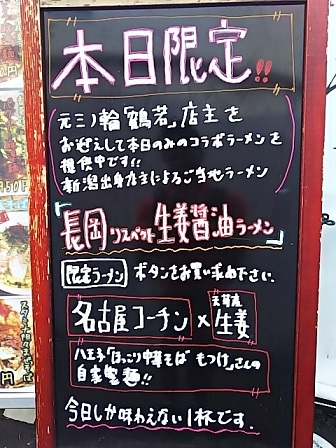 本日限定!!
元三ノ輪「鶴若」店主を
お迎えして本日のみのコラボラーメンを
提供中です!!
新潟出身店主によるご当地ラーメン
「長岡リスペクト生姜醤油ラーメン」
限定ラーメン ボタンをお買い求め下さい.
名古屋コーチン×生姜
八王子「ほっこり中華そば もつけ」さんの
自家製麺!!
今日しか味わえない1杯です.